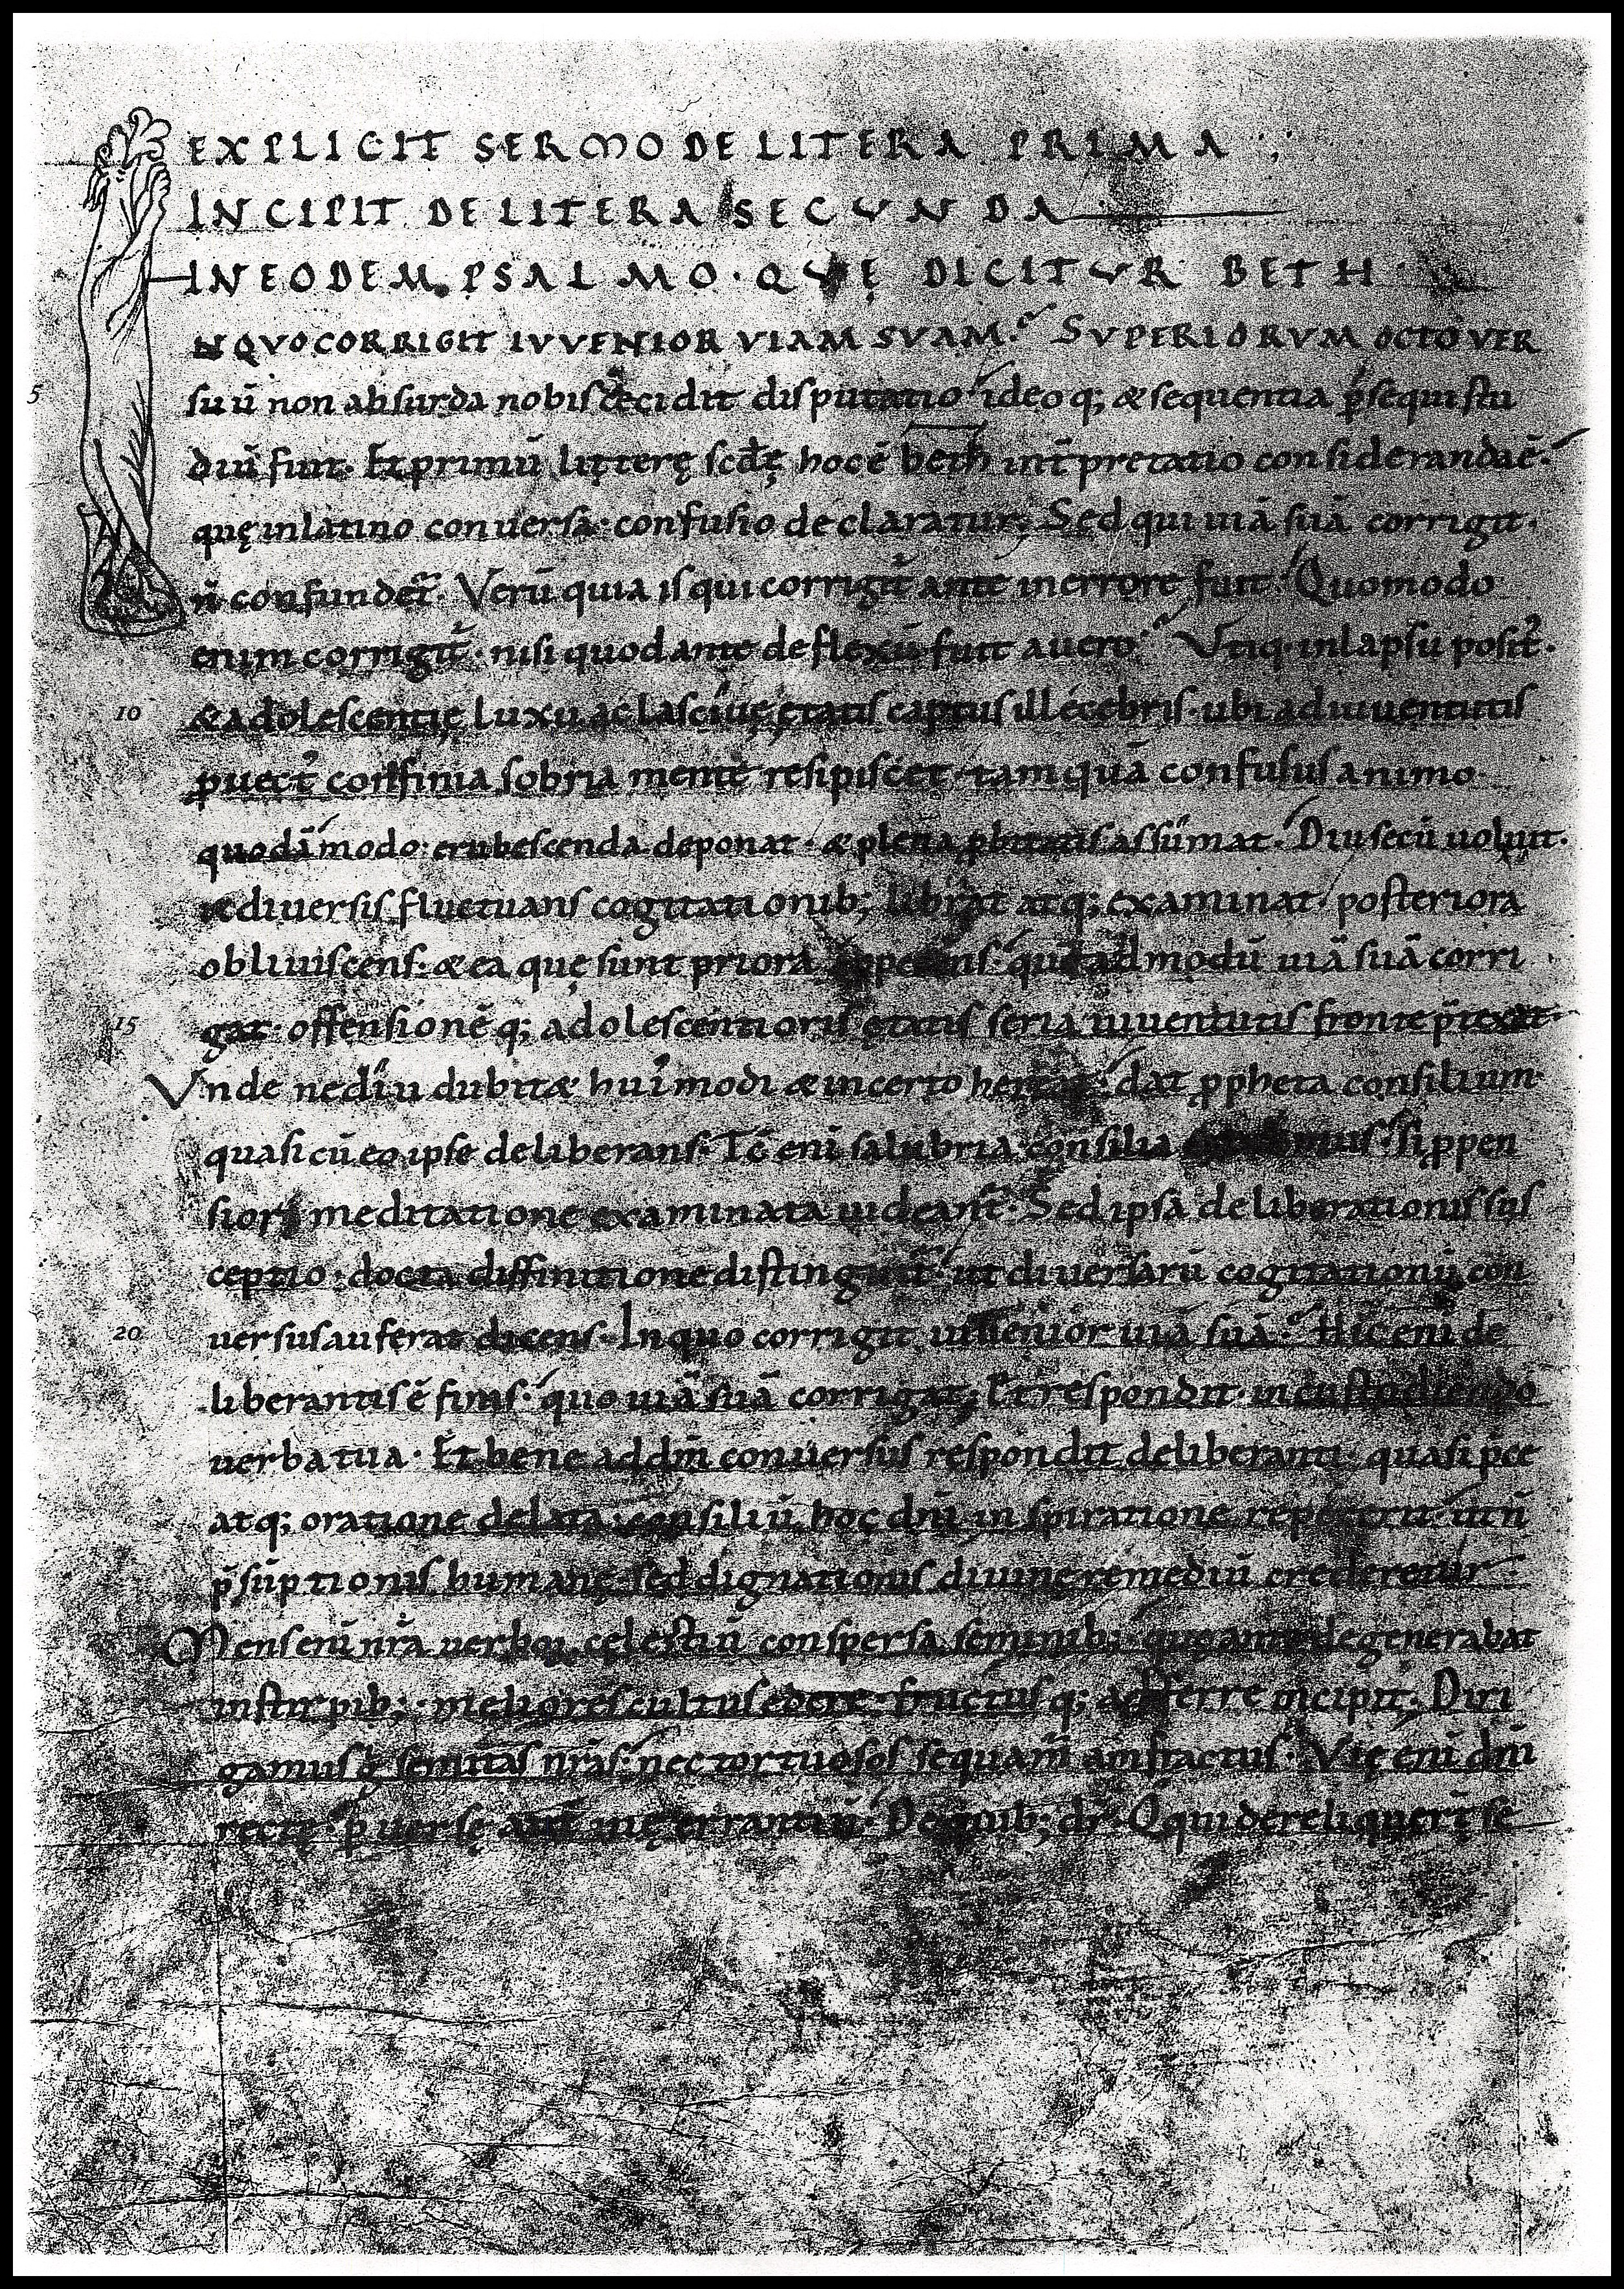 EXPLICIT SERMO DE LITERA PRIMA ;
INCIPIT DE LITERA SECUNDA
IN EODEM PSALMO · QUĘ DICITUR BETH ·
NQVO CORRIGIT IVVENIOR VIAM SVAM. SVPERIORVM OCTO VER
5 suū non absurda nobis cecidit disputatio ideoq; & sequentia p̄sequi stu
diū fuit. Et primū litterę scdę hoc ē beth int̄pretatio consideranda ē.
quę in latino conversa· confusio declaratur; Sed qui uiā suā corrigit·
n̄ confundet̄. Verū quia is qui corrigit̄ ante in errore fuit. Quomodo
enim corrigit̄· nisi quod ante deflexū fuit a uero Utiq· in lapsu posit̉.
10 & adolescentię luxu ac lascivę ętatis captus illecebris· ubi ad iuuentutis
puect̉ confinia sobria mente resipiscet· tam quā confusus animo·
quodāmodo· erubescenda deponat· & plena pbitatis assūmat. Diu secū uoluit·
& diversis fluctuans cogitationib; librat atq; examinat· posteriora
obliuiscens· & ea quę sunt priora quēadmodū uiā suā corri
15 gat· offensionēq; adolescentioris ętatis seria iuuentutis fronte p̄texat·
Unde ne diu dubitæ hui'modi & incerto dat ppheta consilium·
quasi cū eo ipse deliberans· Tc̄ enī salubria consilia si ppen
siori meditatione examinata uideant̄. Sed ipsa deliberationis sus
ceptio· docta diffinitione distinguit̄· ut diuersarū cogitationū con
20 versus auferat dicens· In quo corrigit iuuenior uiā suā. Hic enī de
liberantis ē finis· quo uiā suā corrigat; Et respondit· in custodiendo
verba tua· Et bene ad dm̄ conversus respondit deliberanti· quasi p̄ce
atq; oratione delata consiliū hoc dnī inspiratione reppererit· ut n̄
p̄sūptionis humanę· sed dignationis diuinę remediū crederetur
Mens enī nr̄a verboꝝ cęlestiū conspersa seminib; quę ante degenerabat
in stirpib; · meliores cultus edere· fructusq; adferre incipit; Diri
gamus g̊ semitas nr̄as· nec tortuosos sequam̄ amfractus. Vię enī dnī
rectę· puersę aut̄ uię errantiū. De quib; dr̄· O qui dereliquer̄t se